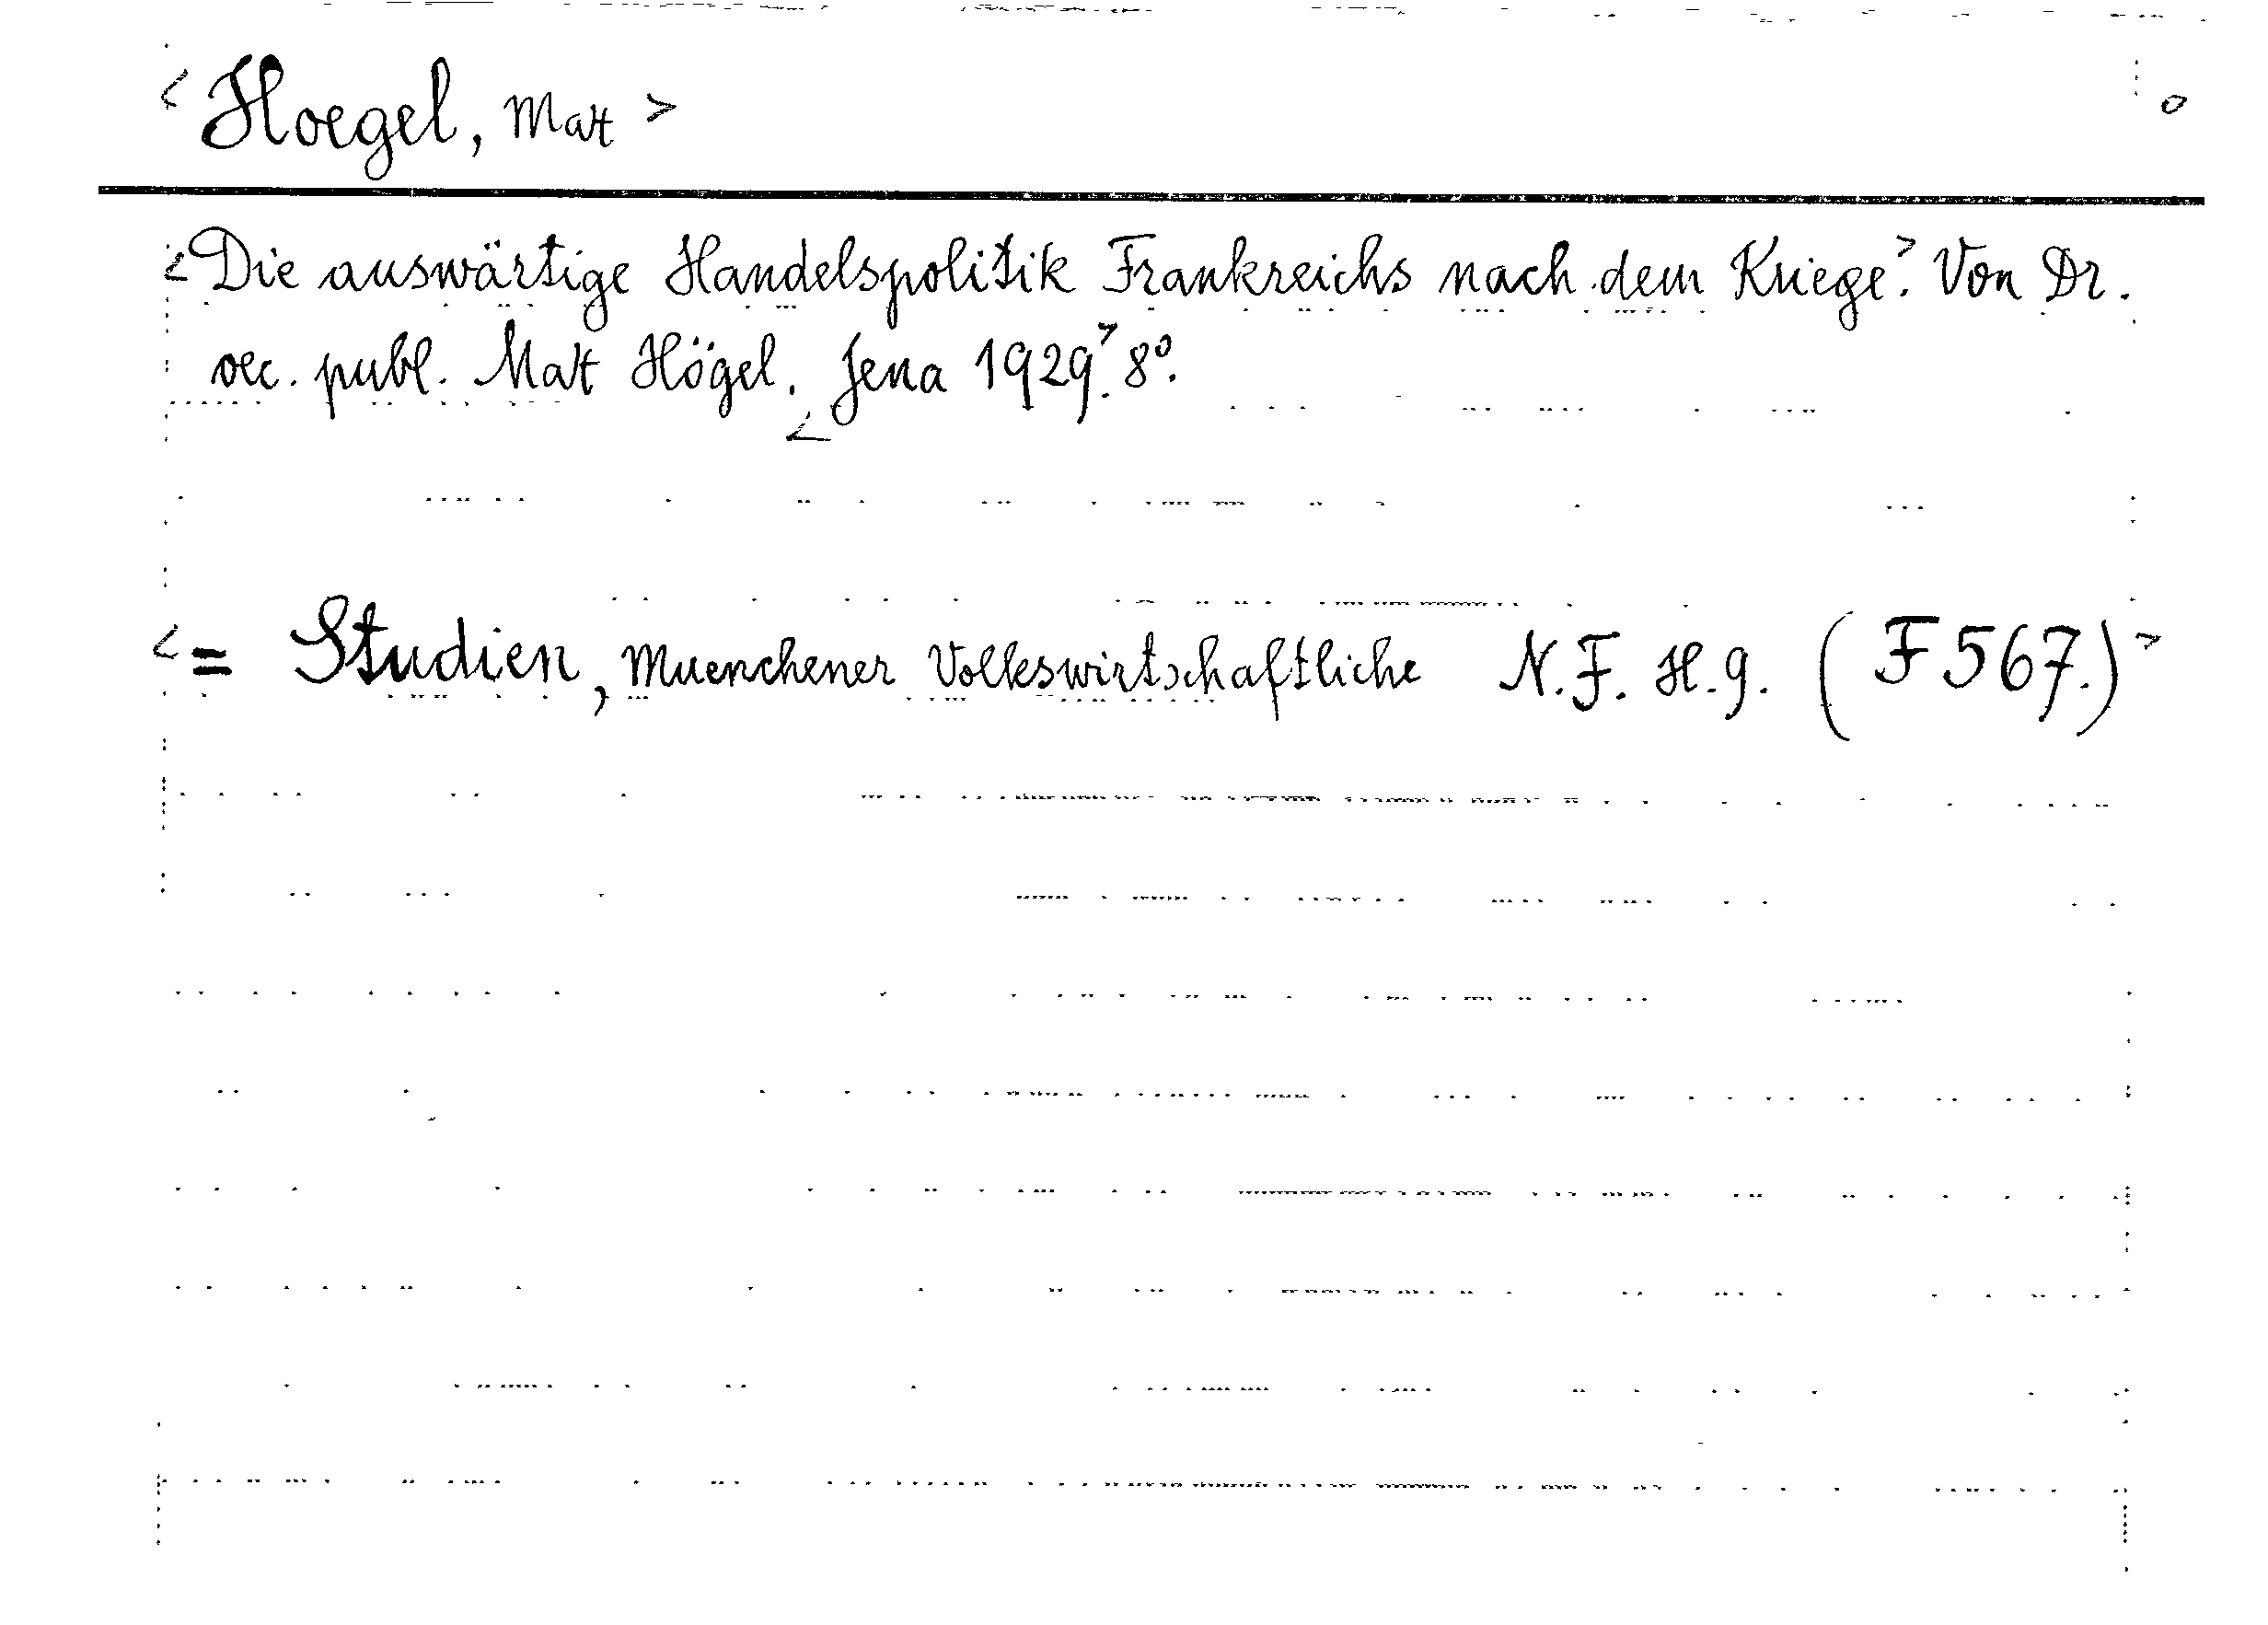 < Hoegel, Max > o
<Die auswärtige Handelspolitik Frankreichs nach dem Kriege.> Von Dr.
oec. publ. Max Högel. <Jena 1929.> 8°.
<= Studien, Muenchener Volkswirtschaftliche N.F. H.9. (F 567.)>